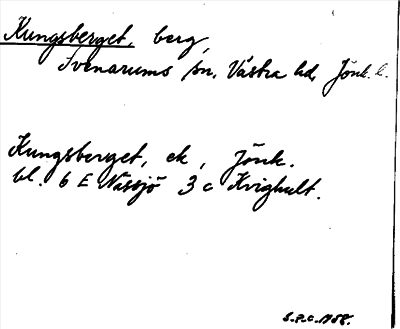 Kungsberget, berg,
Svenarums sn, Västra hd, Jönk. l.
Kungsberget, ek, Jönk.
bl. 6 E Nässjö 3 c Kvighult.
S.P.C. 1958.